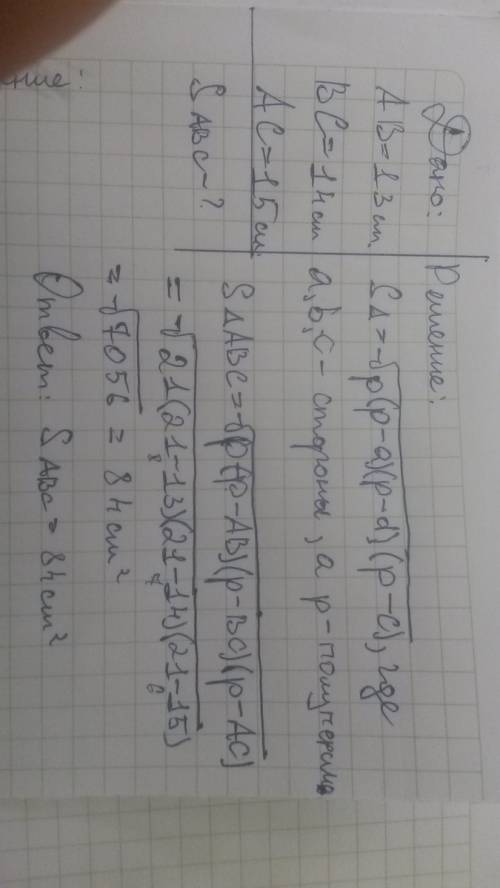 Дано:
AB=13cm
BC=14cm
AC=15cm
S ABC-?
Решение:
SΔ=√p(p-a)(p-d)(p-c), где
a,b,c - стороны, а p-полуперим
SΔABC=√p(p-AB)(p-BC)(p-AC)
=√21(21-13)(21-14)(21-15)
8 7 6
=√7056 = 84cm²
Ответ: S ABC = 84cm²